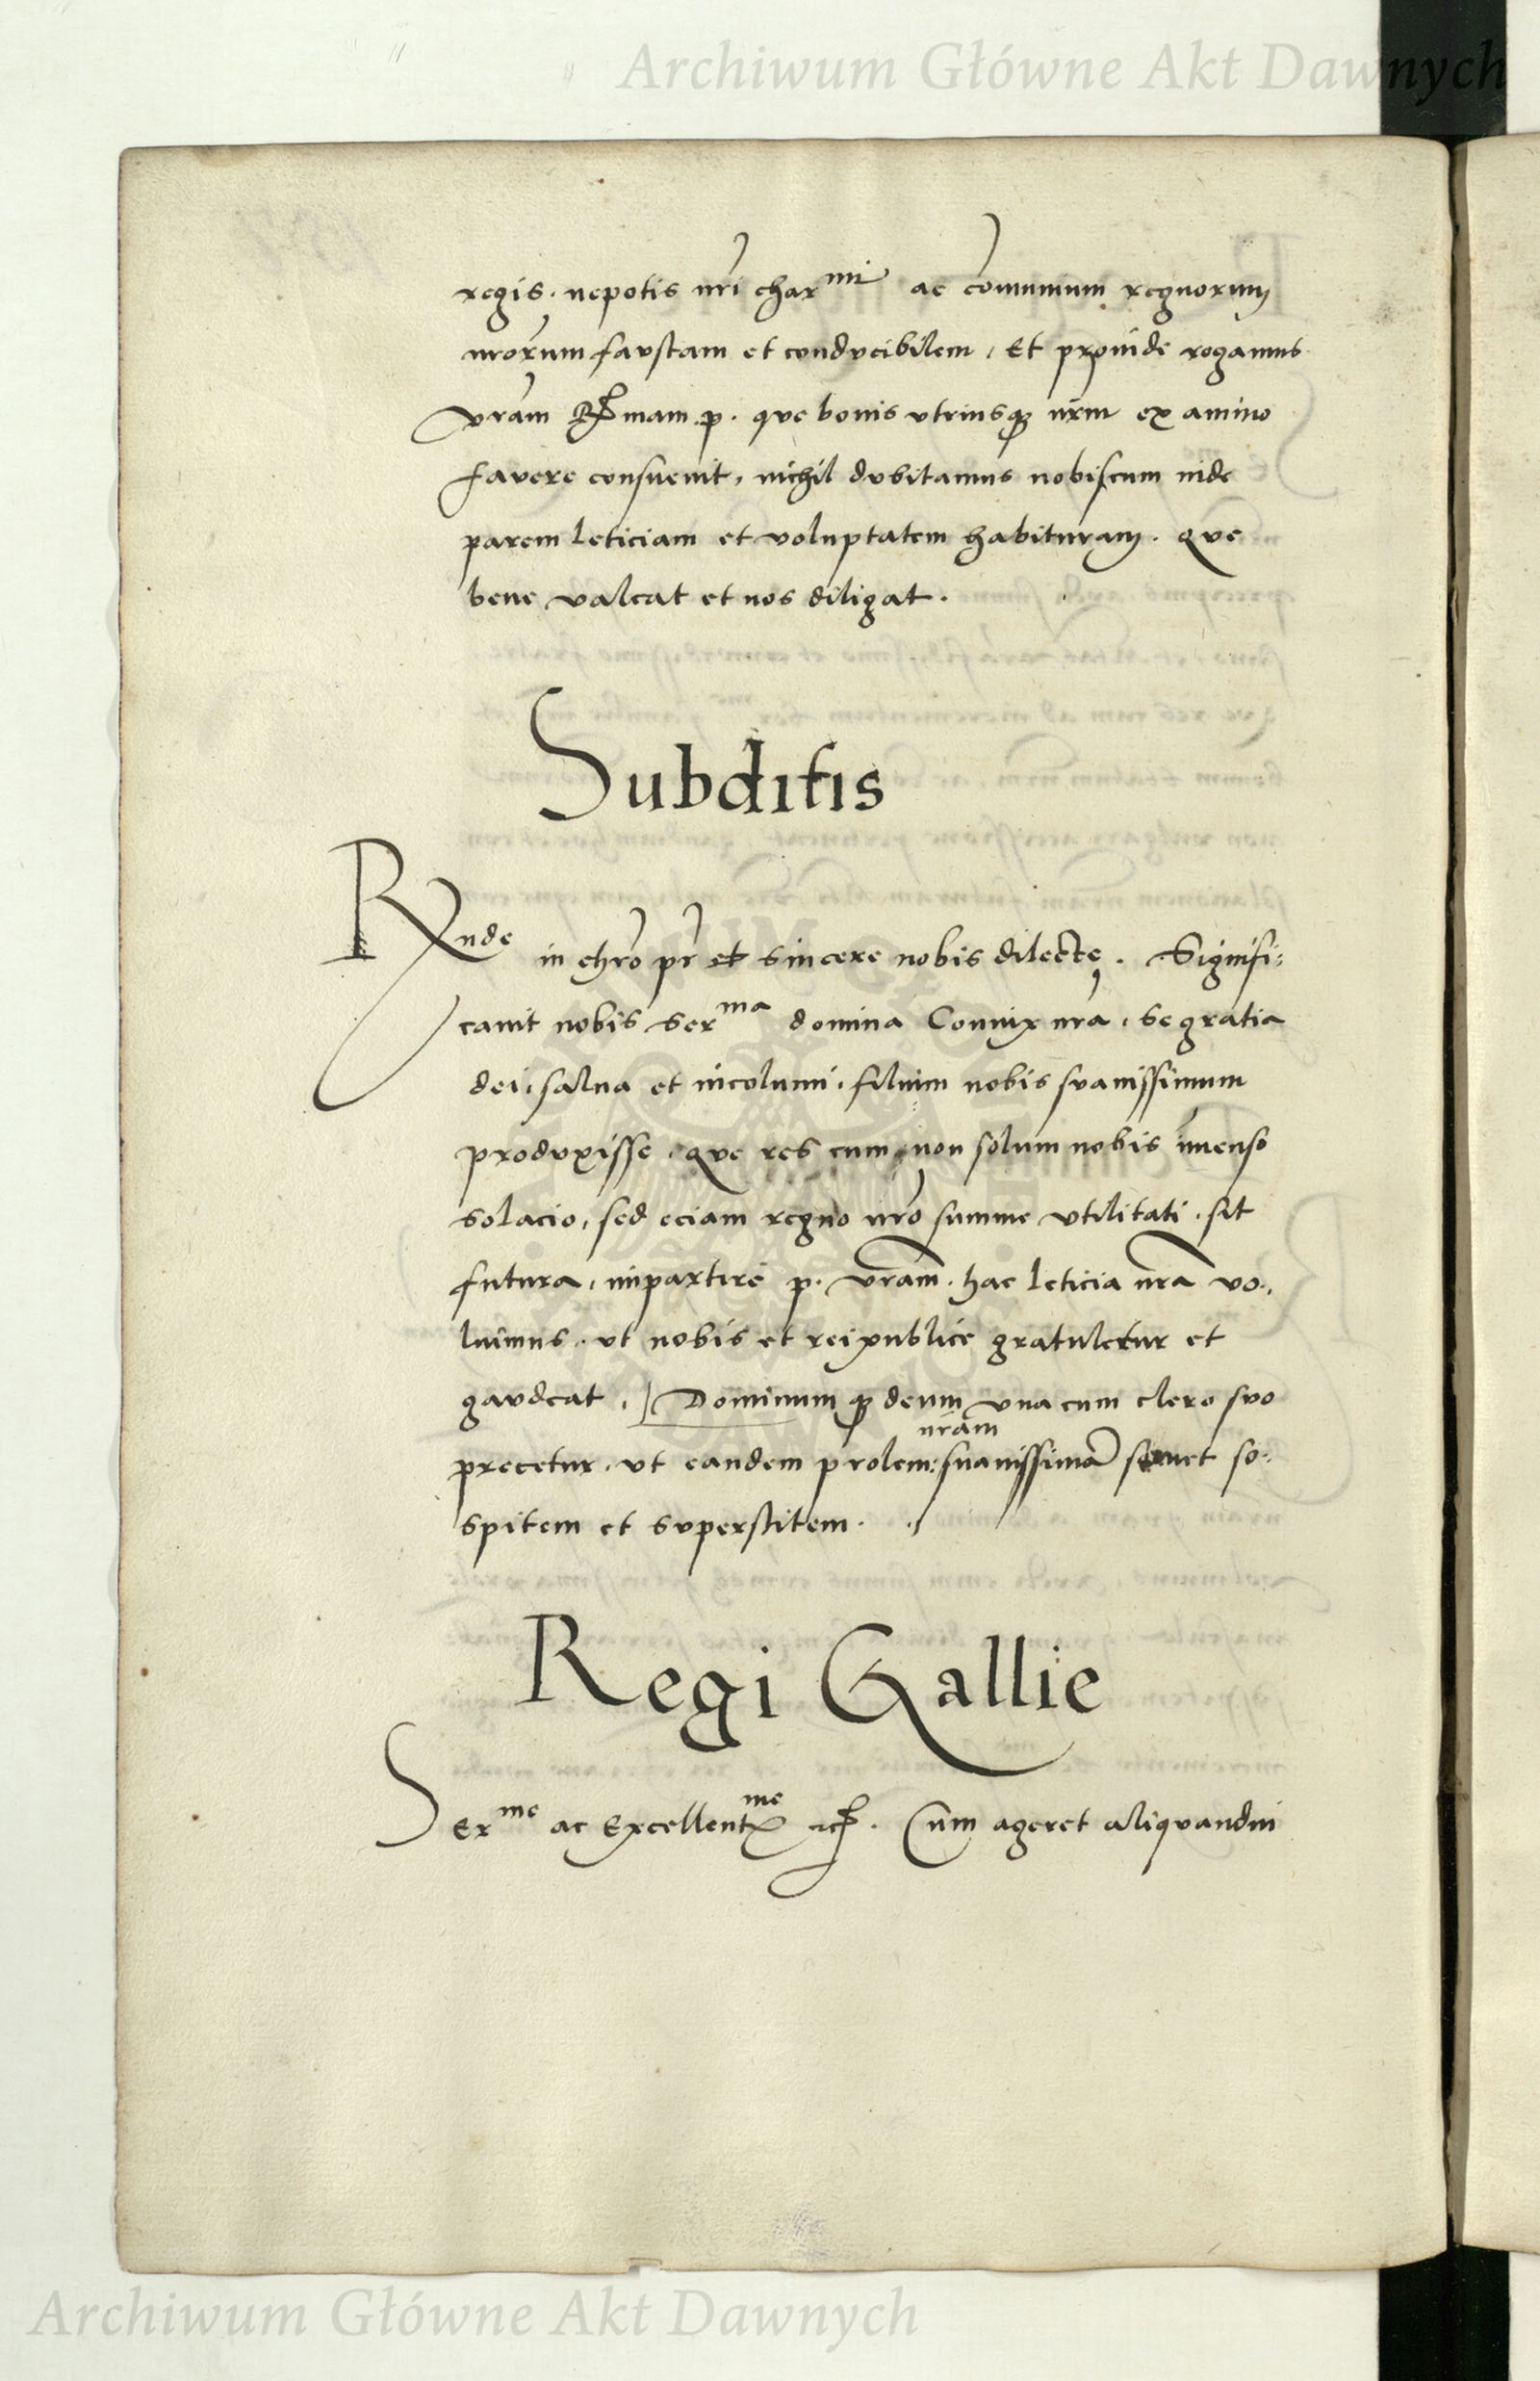 Archiwum Główne Akt Dawnych
regis. nepotis nr̄i char^mi ac com̄unium regnorum
nr̄orum faustam et conducibilem, Et proinde rogamus
vrām R̄mam p. que bonis utriusqꝫ nr̄m ex animo
favere consuevit, nichil dubitamus nobiscum inde
parem leticiam et voluptatem habituram. que
bene valeat et nos diligat.
Subditis
Rnde in chr̄o pr̄ et sincere nobis dilecte. Signifi:
cavit nobis Ser^ma domina Coniux nrā, se gratia
dei, salva et incolumi, filium nobis suavissimum
produxisse, que res cum non solum nobis īmenso
solacio, sed eciam regno nr̄o summe utilitati, sit
futura, impartiri p. vrām. hac leticia nrā vo:,
luimus, ut nobis et reipublice gratuletur et
gaudeat, Dominum qꝫ deum una cum clero suo
nrām
precetur, ut eandem prolem: suavissimā servet so:
spitem et superstitem.
Regi Gallie
Ser^me ac Excellent^me etc. Cum ageret aliquandiu
Archiwum Główne Akt Dawnych